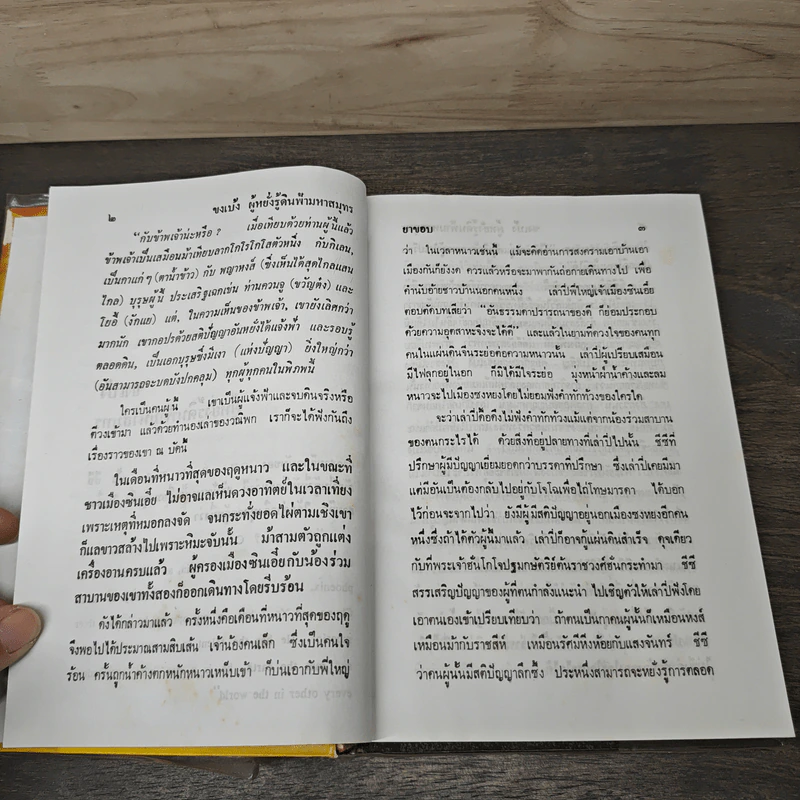 ๒
ขงเบ้ง ผู้หยั่งรู้ดินฟ้ามหาสมุทร
"กับข้าพเจ้าน่ะหรือ ? เมื่อเทียบด้วยท่านผู้นี้แล้ว
ข้าพเจ้าเป็นเสมือนม้าเทียบลากโกโรโกโสตัวหนึ่ง กับกิเลน,
เป็นกาแก่ๆ (ตาน้ำข้าว) กับ พญาหงส์ (ซึ่งเห็นได้สุดไกลแสน
ไกล) บุรุษผู้นี้ ประเสริฐเฉกเช่น ท่านควนจู (ขวัญต๋ง) และ
โยอี้ (งักแย) แต่, ในความเห็นของข้าพเจ้า, เขายังเลิศกว่า
มากนัก เขากอปรด้วยสติปัญญาอันหยั่งได้แจ้งฟ้า และรอบรู้
ตลอดดิน, เป็นเอกบุรุษซึ่งมีเงา (แห่งปัญญา) ยิ่งใหญ่กว่า
(อันสามารถจะบดบังปกคลุม) ทุกผู้ทุกคนในพิภพนี้
ใครเป็นคนผู้นี้ เขาเป็นผู้แจ้งฟ้าและจบดินจริงหรือ
ดีวงเข้ามา แล้วด้วยทำนองเล่าของวณิพก เราก็จะได้ฟังกันถึง
เรื่องราวของเขา ณ บัดนี้
ในเดือนที่หนาวที่สุดของฤดูหนาว และในขณะที่
ชาวเมืองซินเอี๋ย ไม่อาจแลเห็นดวงอาทิตย์ในเวลาเที่ยง
เพราะเหตุที่หมอกลงจัด จนกระทั่งยอดไผ่ตามเชิงเขา
ก็แลขาวสล้างไปเพราะหิมะจับนั้น ม้าสามตัวถูกแต่ง
เครื่องอานครบแล้ว ผู้ครองเมืองซินเอี๋ยกับน้องร่วม
สาบานของเขาทั้งสองก็ออกเดินทางโดยรีบร้อน
ดังได้กล่าวมาแล้ว ครั้งหนึ่งคือเดือนที่หนาวที่สุดของฤดู
จึงพอไปได้ประมาณสามสิบเส้น เจ้าน้องคนเล็ก ซึ่งเป็นคนใจ
ร้อน ครั้นถูกน้ำค้างตกหนักหนาวเหน็บเข้า ก็บ่นเอากับพี่ใหญ่
ยาขอบ
๓
ว่า ในเวลาหนาวเช่นนี้ แม้จะคิดอ่านการสงครามเอาบ้านเอา
เมืองกันก็ยังงด ควรแล้วหรือจะมาพากันถ่อกายเดินทางไป เพื่อ
คำนับอ้ายชาวบ้านนอกคนหนึ่ง เล่าปี่พี่ใหญ่เจ้าเมืองซินเอี๋ย
ตอบตัดบทเสียว่า "อันธรรมดาปรารถนาของดี ก็ย่อมประกอบ
ด้วยความอุตสาหะจึงจะได้ดี" และแล้วในยามที่ดวงใจของคนทุก
คนในแผ่นดินจีนระย่อต่อความหนาวนั้น เล่าปี่ผู้เปรียบเสมือน
มีไฟลุกอยู่ในอก ก็มิได้มีใจระย่อ มุ่งหน้าฝ่าน้ำค้างและลม
หนาวจะไปเมืองซงหยงโดยไม่ยอมฟังคำทักท้วงของใครใด
จะว่าเล่าปี่ดื้อดึงไม่ฟังคำทักท้วงแม้แต่จากน้องร่วมสาบาน
ของตนกระไรได้ ด้วยสิ่งที่อยู่ปลายทางที่เล่าปี่ไปนั้น ชีซีที่
ปรึกษาผู้มีปัญญาเยี่ยมยอดกว่าบรรดาที่ปรึกษา ซึ่งเล่าปี่เคยมีมา
แต่มีอันเป็นต้องกลับไปอยู่กับโจโฉเพื่อไถ่โทษมารดา ได้บอก
ไว้ก่อนจะจากไปว่า ยังมีผู้มีสติปัญญาอยู่นอกเมืองซงหยงอีกคน
หนึ่งซึ่งถ้าได้ตัวผู้นี้มาแล้ว เล่าปี่ก็อาจกู้แผ่นดินสำเร็จ ดุจเดียว
กับที่พระเจ้าฮั่นโกโจปฐมกษัตริย์ต้นราชวงศ์ฮั่นกระทำมา ชีซี
สรรเสริญปัญญาของผู้ที่ตนกำลังแนะนำ ไปเชิญตัวให้เล่าปี่ฟังโดย
เอาตนเองเข้าเปรียบเทียบว่า ถ้าตนเป็นกาคนผู้นั้นก็เหมือนหงส์
เหมือนม้ากับราชสีห์ เหมือนรัศมีหิ่งห้อยกับแสงจันทร์ ชีซี
ว่าคนผู้นั้นมีสติปัญญาลึกซึ้ง ประหนึ่งสามารถจะหยั่งรู้การตลอด